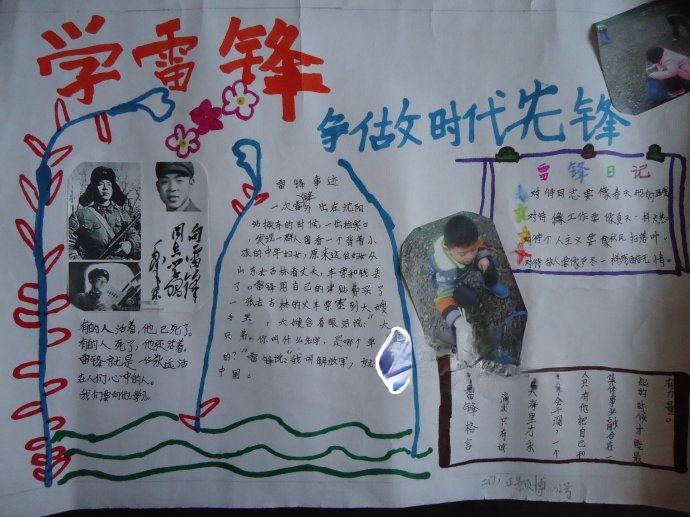 学雷锋
争估文时代先锋
向雷锋
同志学习
毛泽东
有的人活着，他已死了。
有的人死了，他还活着。
雷锋就是一名永远活
在人们心中的人。
我们要向他学习。
雷锋事迹
一次雷锋出在沈阳
站换车的时候，一出检票
，发现一群人围着一个背着小
孩的中年妇女，原来这位妇女从
山东去吉林看丈夫，车票和钱丢
了。雷锋用自己的津贴费买了
一张去吉林的火车票塞到大嫂
手里，大嫂含着眼泪说："大
兄弟，你叫什么名字，是哪个单
的？"雷锋说："我叫解放军，就
中国。
雷锋日记
对待同志要像春天般的温暖
对待工作要像夏天一样火热
对待个人主义要像秋风扫落叶。
对待敌人要像严冬一样残酷无情。
雷锋格言
一滴水只有放
大海里才永
会干涸，一个
人只有他把自己和
集体事业融合在一
起的时候才能最
有力量。